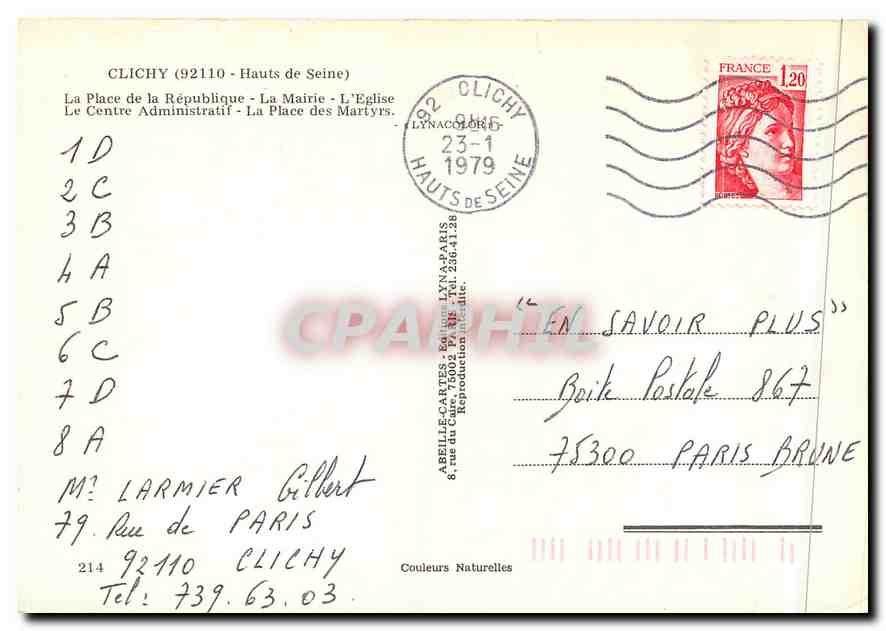 CLICHY (92110 - Hauts de Seine)
La Place de la République - La Mairie - L'Eglise
Le Centre Administratif - La Place des Martyrs.
- «LYNACOLOR» -
92 CLICHY
23-1
1979
HAUTS DE SEINE
FRANCE 1,20
1 D
2 C
3 B
4 A
5 B
6 C
7 D
8 A
Mr LARMIER Gilbert
79. Rue de PARIS
92110 CLICHY
Tel: 739.63.03.
214
ABEILLE-CARTES - Editions LYNA-PARIS
8, rue du Caire, 75002 PARIS - Tél. 236.41.28
Reproduction interdite.
CPAPHIL
"EN SAVOIR PLUS"
Boite Postale 867
75300 PARIS BRUNE
Couleurs Naturelles